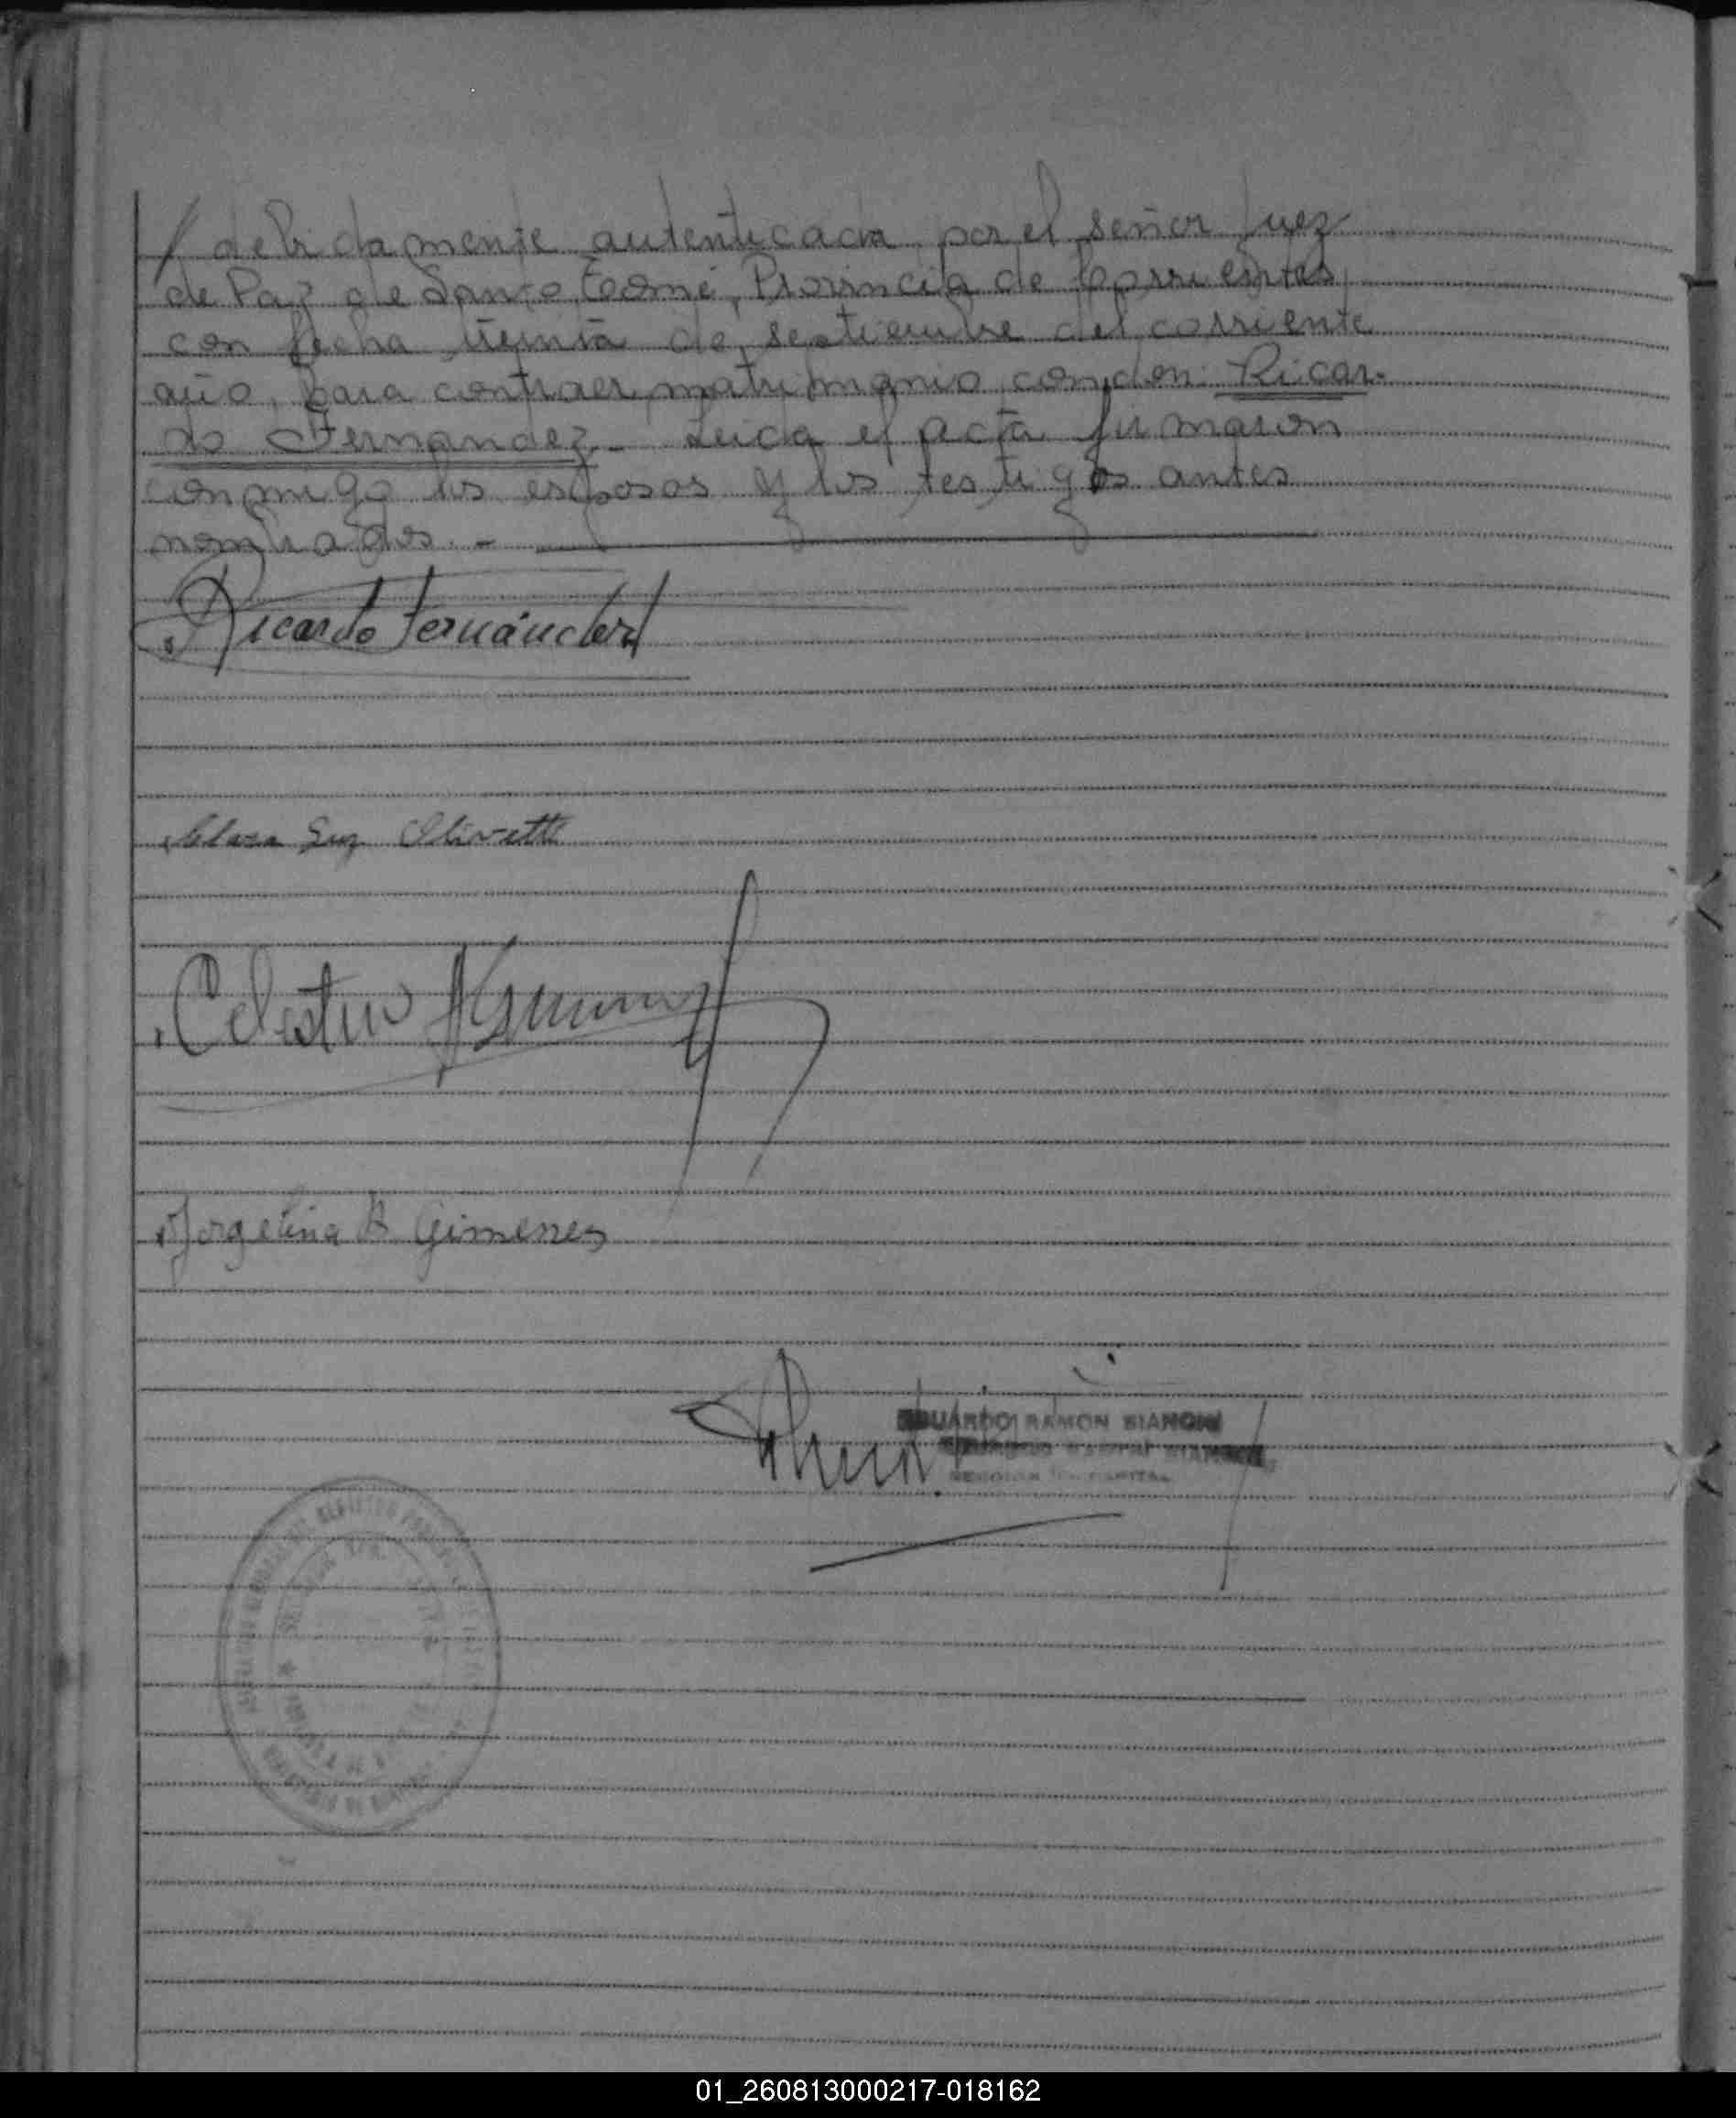 / debidamente autenticada por el señor Juez
de Paz de Santo Tomé, Provincia de Corrientes,
con fecha treinta de septiembre del corriente
año, para contraer matrimonio con don: Ricar-
do Fernandez.- Leida el acta firmaron
conmigo los esposos y los testigos antes
nombrados.-
Ricardo Fernández
Clara Luz Olivetti
Celestino
Jorgelina B Gimenez
EDUARDO RAMON BIANCHI
01_260813000217-018162